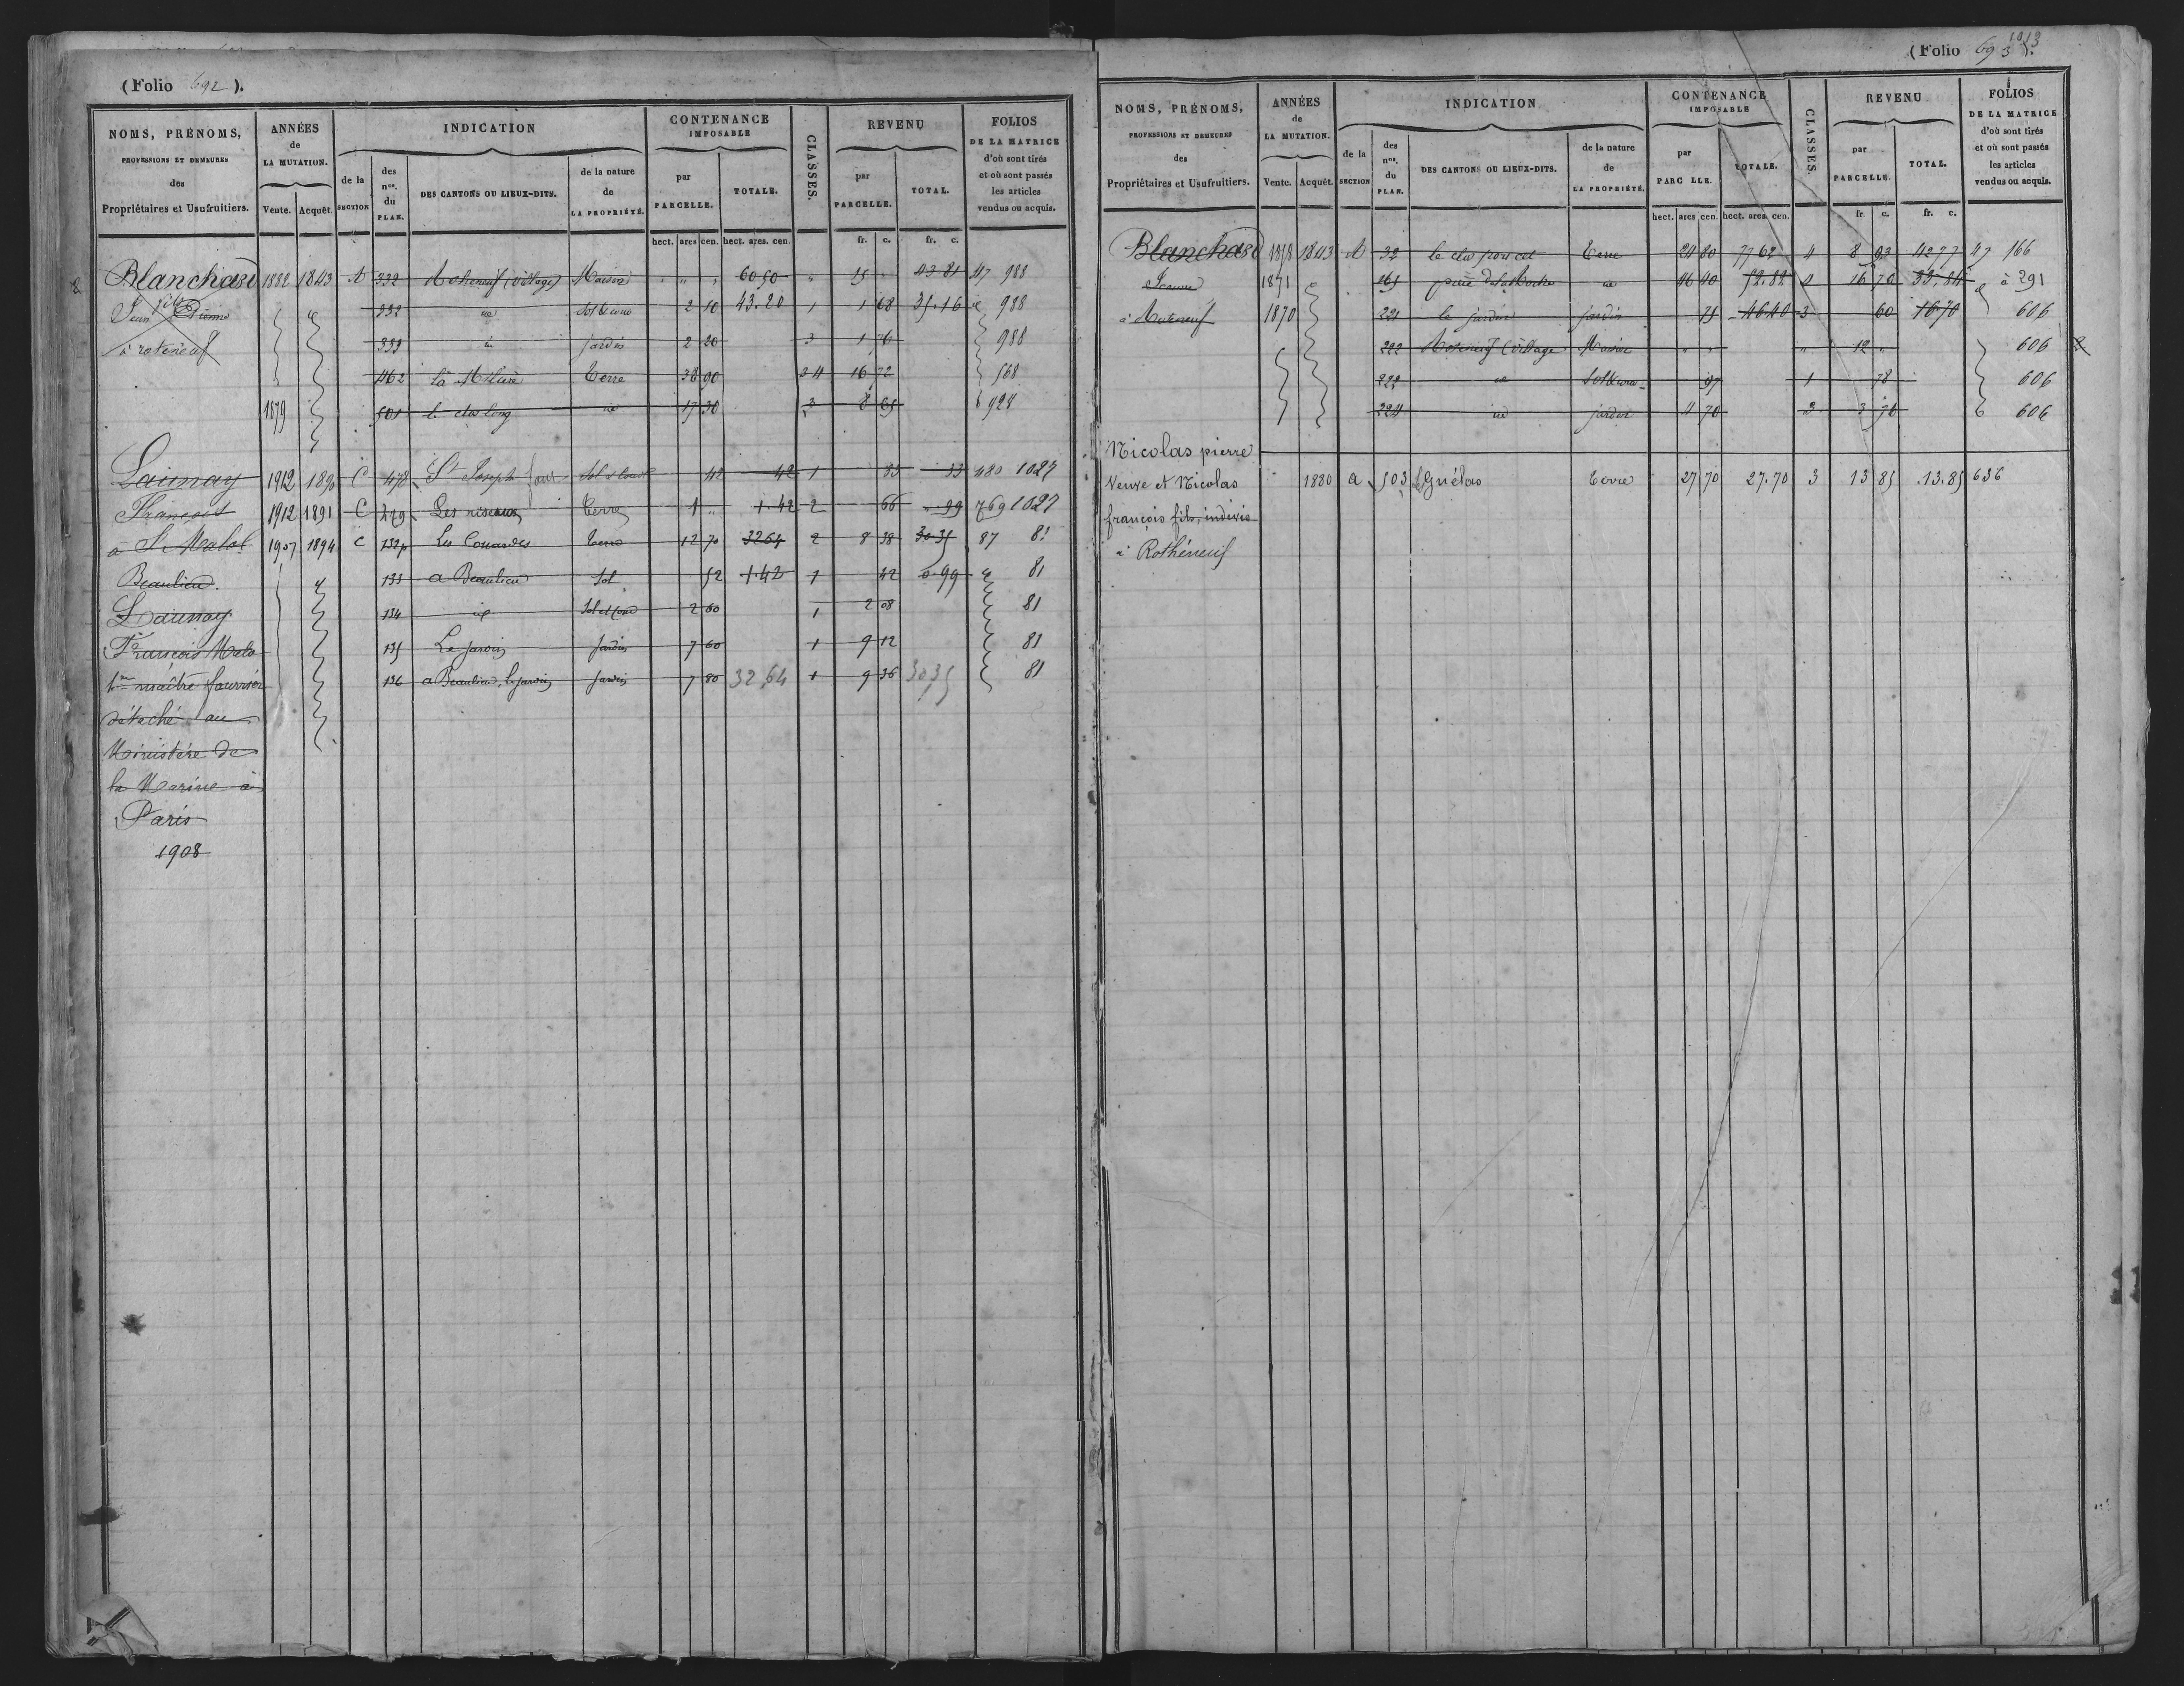 (Folio 692).
NOMS, PRÉNOMS, PROFESSIONS ET DEMEURES des Propriétaires et Usufruitiers. ANNÉES de LA MUTATION. Vente. Acquêt. INDICATION de la SECTION des nos. du PLAN. DES CANTONS OU LIEUX-DITS. de la nature de LA PROPRIÉTÉ. CONTENANCE IMPOSABLE par PARCELLE. TOTALE. CLASSES. REVENU par PARCELLE. TOTAL. FOLIOS DE LA MATRICE d'où sont tirés et où sont passés les articles vendus ou acquis.
hect. ares cen. hect. ares. cen. fr. c. fr. c.
Blanchard 1882 1843 A 332 Rotheneuf (village) Maison " " " 60.50 " 15 " 43 81 47 988
Jean Etienne fils 332 id Sol & cour 2 10 43.20 1 1 68 35.16 988
à roteneuf 333 id jardin 2 20 3 1 76 988
462 Terre 38 90 3 4 16 72 568
1879 501 le clos long id 17 30 3 8 65 928
Launay 1912 1890 C 478 St Joseph four Sol & cour 42 42 1 33 33 480 1027
François 1912 1891 C 279 Les riseaux Terre 1 " 1.42 2 66 99 769 1027
à St Malo 1907 1894 C 132p Les Couardes Terre 12 70 3264 2 8 38 30.35 87 81
Beaulieu. 133 a Beaulieu Sol 52 1.42 1 42 0.99 81
Launay 134 id Sol et cour 2 60 1 2 08 81
François Malo 135 Le jardin Jardin 7 60 1 9 12 81
1er maître fourrier 136 a Beaulieu, le jardin Jardin 7 80 32,64 1 9 36 3035 81
détaché au
Ministère de
la Marine à
Paris
1908
(Folio 693). 1013
NOMS, PRÉNOMS, PROFESSIONS ET DEMEURES des Propriétaires et Usufruitiers. ANNÉES de LA MUTATION. Vente. Acquêt. INDICATION de la SECTION des nos. du PLAN. DES CANTONS OU LIEUX-DITS. de la nature de LA PROPRIÉTÉ. CONTENANCE IMPOSABLE par PARC LLE. TOTALE. CLASSES. REVENU par PARCELLE. TOTAL. FOLIOS DE LA MATRICE d'où sont tirés et où sont passés les articles vendus ou acquis.
hect. ares cen. hect. ares. cen. fr. c. fr. c.
Blanchard 1858 1843 A 32 le clos Terre 24 80 77 62 4 8 93 42 77 47 166
Jeanne 1871 id 46 40 52.82 4 16 70 33,84 à 291
à Roteneuf 1870 221 le jardin jardin 75 46 40 3 60 16 70 606
222 Roteneuf (village Maison " " " 12 " 606
222 id Sol & cour 97 1 78 606
224 id jardin 4 70 3 3 76 606
Nicolas pierre
Veuve et Nicolas 1880 a 503 Guélas terre 27 70 27.70 3 13 85 13.85 636
françois fils, indivis
à Rothéneuf